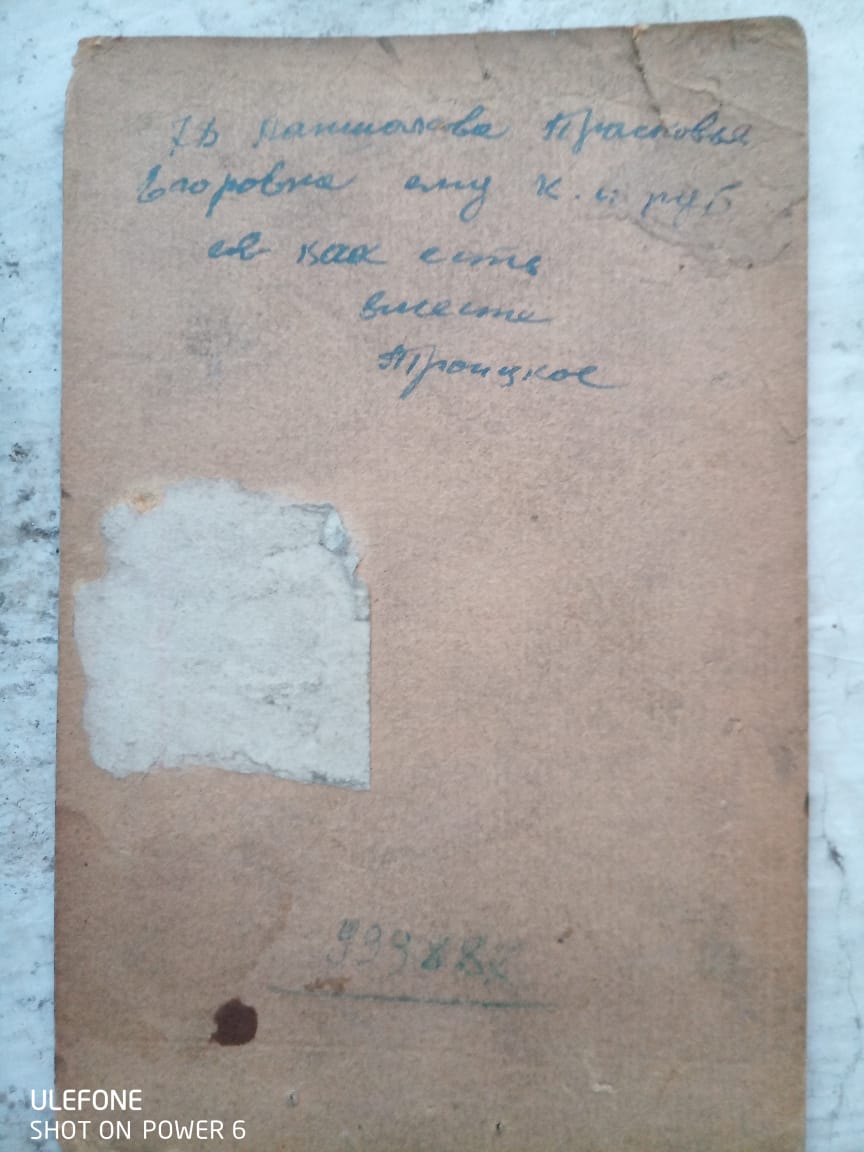 Прасковья
Егоровна ему к. и руб
ев как есть
вместе
Троицкое
ULEFONE
SHOT ON POWER 6